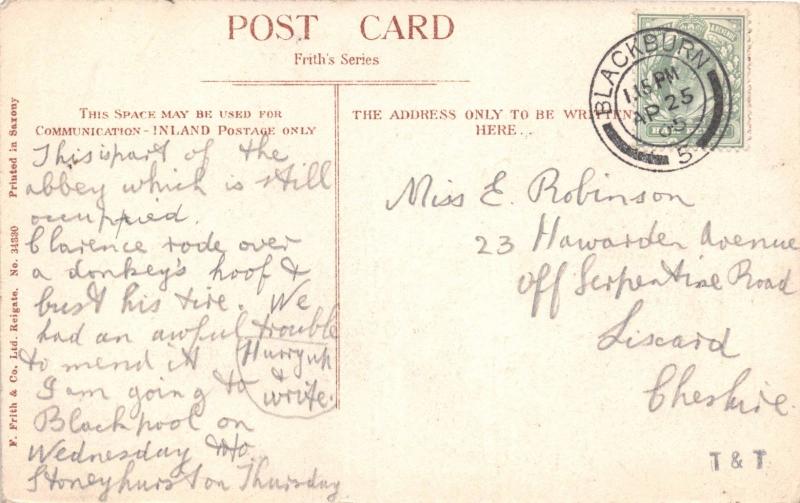 POST CARD
Frith's Series
THIS SPACE MAY BE USED FOR
COMMUNICATION - INLAND POSTAGE ONLY
THE ADDRESS ONLY TO BE WRITTEN
HERE.
BLACKBURN
1.15 PM
AP 25
05
5
HALFPENNY
This is part of the
abbey which is still
occupied.
Clarence rode over
a donkey's hoof &
bust his tire. We
had an awful trouble
to mend it
I am going to
Blackpool on
Wednesday &
Stoneyhurst on Thursday
Hurry up
&
write.
Miss E. Robinson
23 Hawarden Avenue
Off Serpentine Road
Liscard
Cheshire.
T & T
F. Frith & Co., Ltd. Reigate. No. 34330 Printed in Saxony